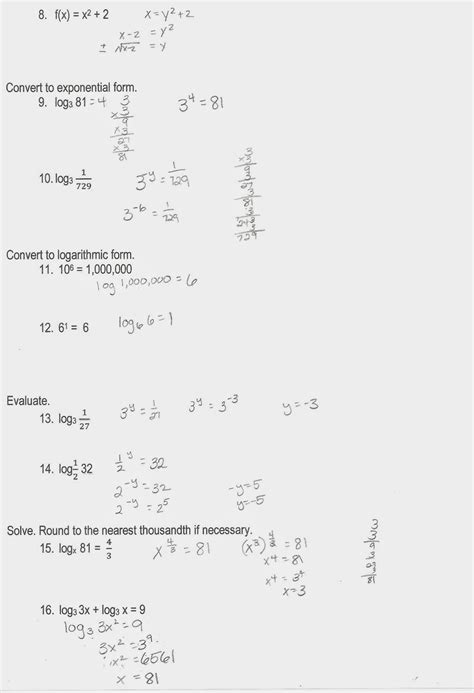 8. f(x) = x² + 2 x = y² + 2
x - 2 = y²
± √x-2 = y
Convert to exponential form.
9. log₃ 81 = 4 3⁴ = 81
3
x 3
9
x 3
27
x 3
81
10. log₃ 1/729 3^y = 1/729
3⁻⁶ = 1/729
729
Convert to logarithmic form.
11. 10⁶ = 1,000,000
log 1,000,000 = 6
12. 6¹ = 6 log₆ 6 = 1
Evaluate.
13. log₃ 1/27 3^y = 1/27 3^y = 3⁻³ y = -3
14. log 1/2 32 1/2^y = 32
2^-y = 32 -y = 5
2^-y = 2⁵ y = -5
Solve. Round to the nearest thousandth if necessary.
15. logₓ 81 = 4/3 x^4/3 = 81
x⁴ = 81
x⁴ = 3⁴
x = 3
16. log₃ 3x + log₃ x = 9
log₃ 3x² = 9
3x² = 3⁹
x² = 6561
x = 81